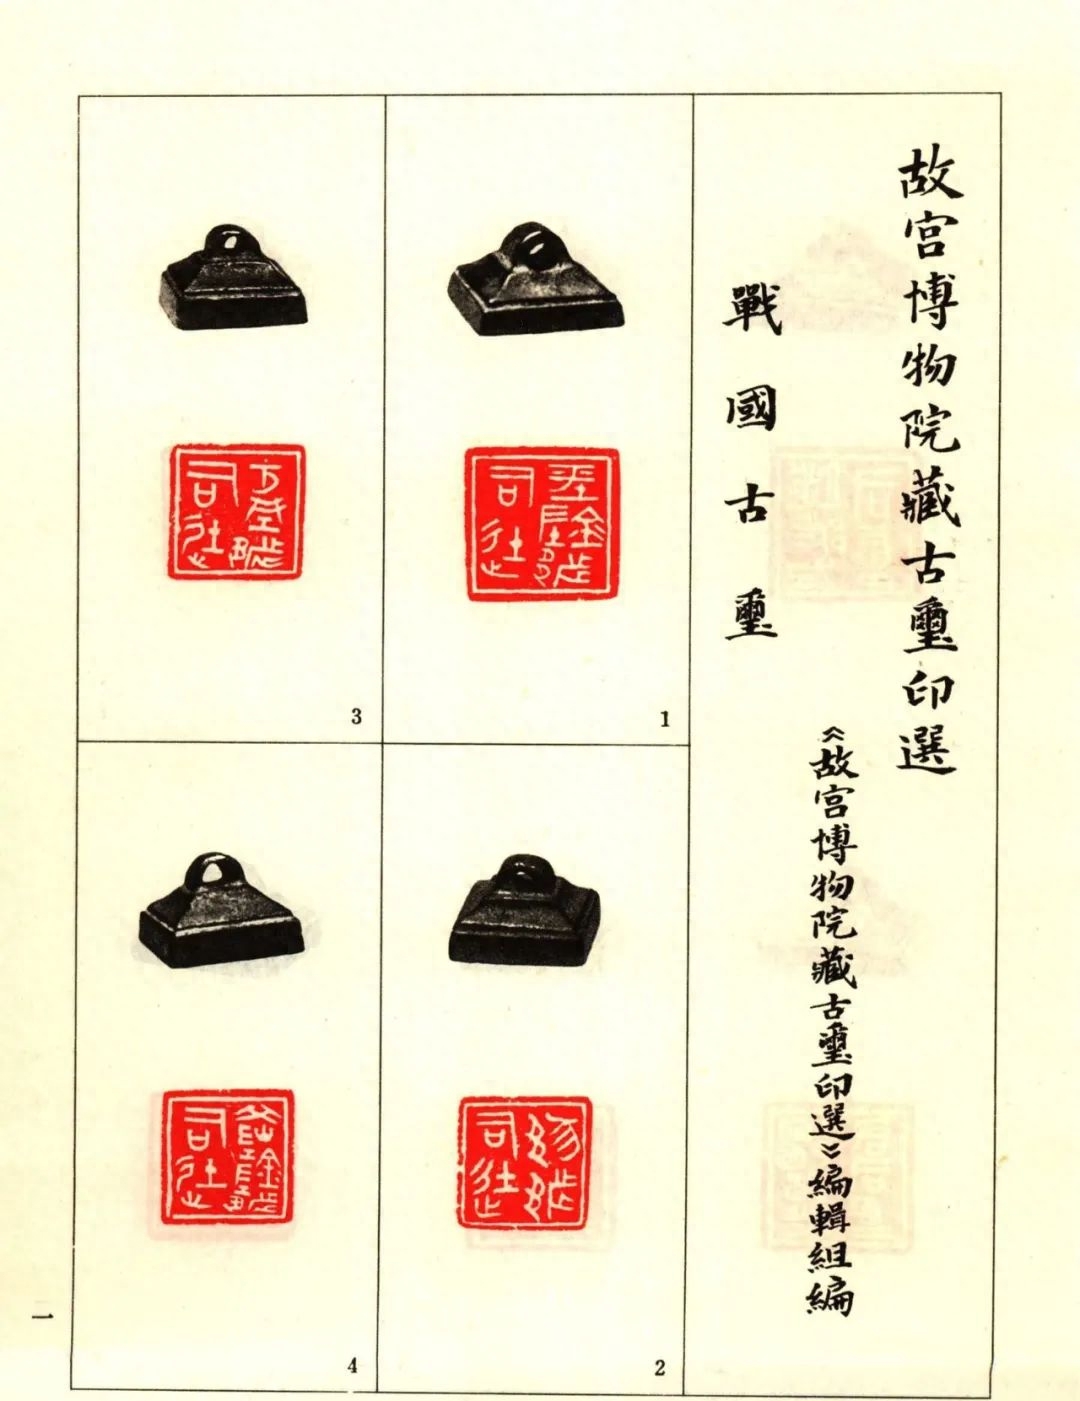 故宮博物院藏古璽印選
戰國古璽
《故宮博物院藏古璽印選》編輯組編
1
司徒
2
司徒
3
司徒
4
司徒
一